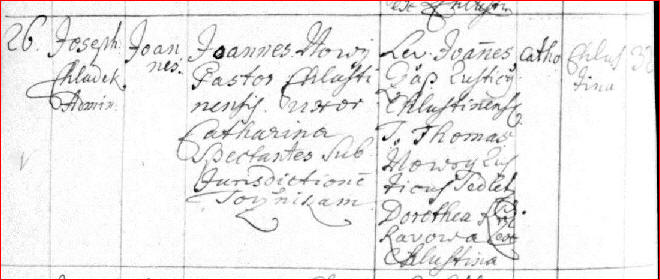 26. Joseph Chladek Admin.
Joannes.
Joannes Nowy
Pastor Chlusti
nensis. Uxor
Catharina
Spectantes Sub
Jurisdictionē
Toÿnicam.
Lev. Joañes
Gap Rusticus
Chlustinens.
T. Thomas
Nowy Rus
ticus Sedlet
Dorothea
Chlustina
Catho
Chlus
tina